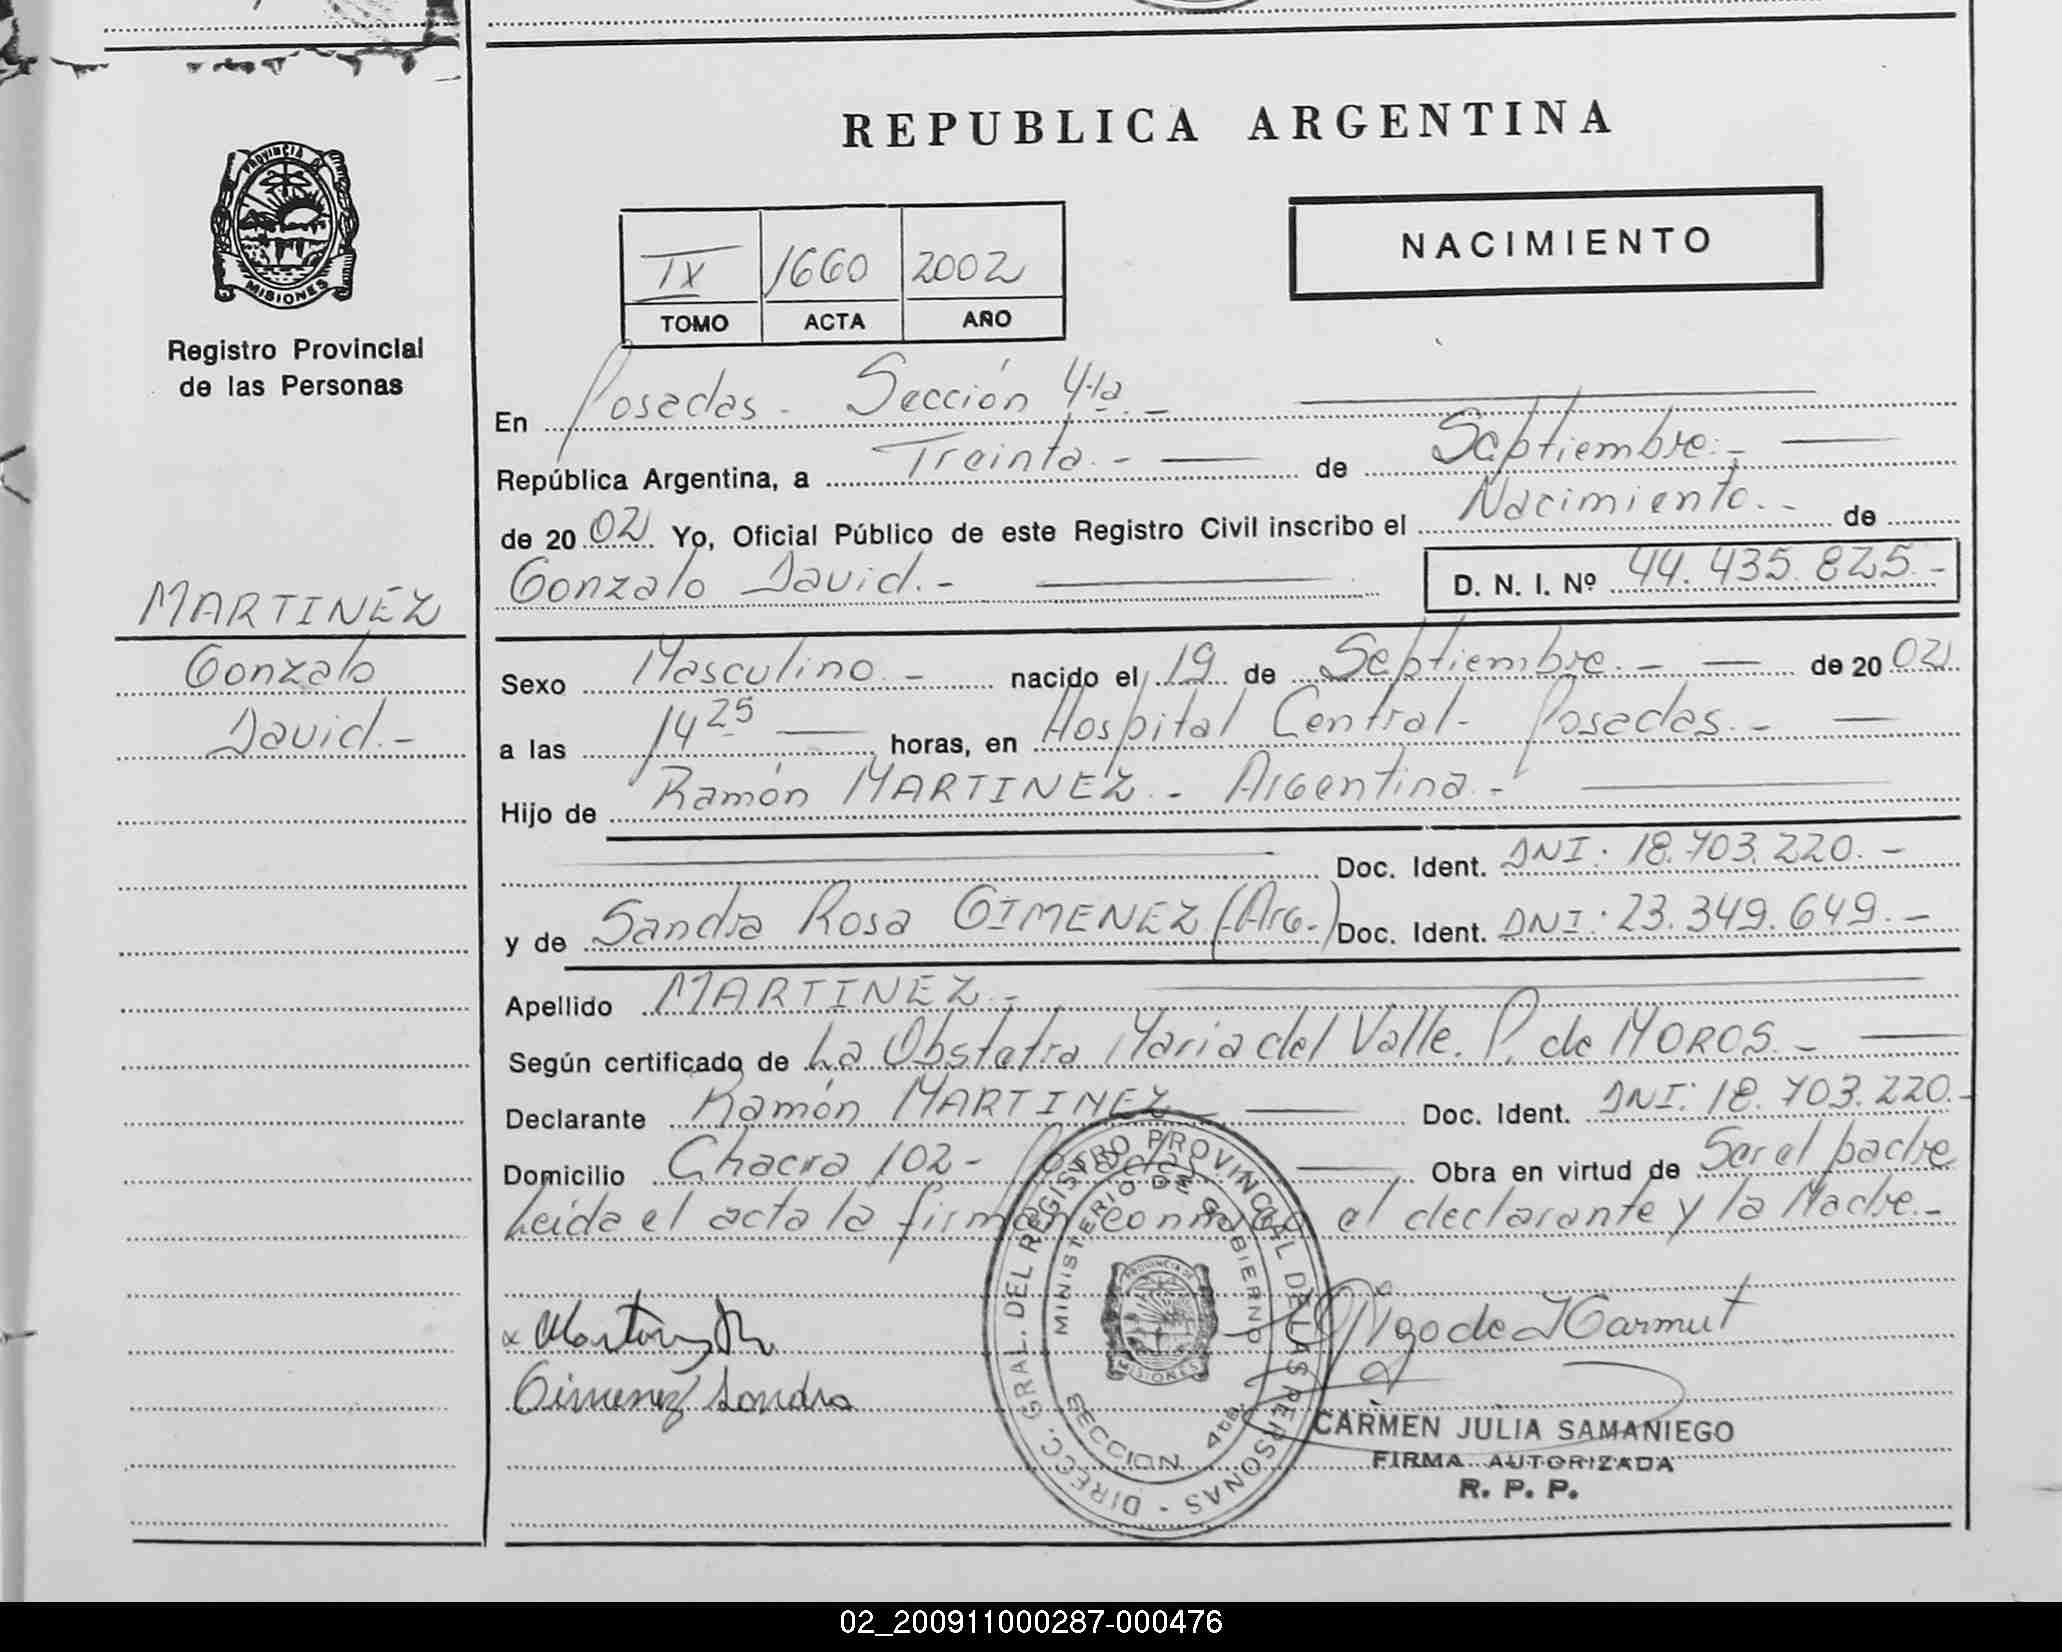 REPUBLICA ARGENTINA
PROVINCIA DE
MISIONES
Registro Provincial
de las Personas
NACIMIENTO
IX 1660 2002
TOMO ACTA AÑO
En Posadas - Sección 4ta.-
República Argentina, a Treinta.- de Septiembre.-
de 2002 Yo, Oficial Público de este Registro Civil inscribo el Nacimiento.- de
Gonzalo David.- D. N. I. Nº 44.435.825.-
MARTINEZ
Gonzalo
David.-
Sexo Masculino.- nacido el 19 de Septiembre.- de 2002
a las 14 25 horas, en Hospital Central - Posadas.-
Hijo de Ramón MARTINEZ.- Argentina.-
Doc. Ident. DNI: 18.703.220.-
y de Sandra Rosa GIMENEZ (Arg.) Doc. Ident. DNI: 23.349.649.-
Apellido MARTINEZ.-
Según certificado de La Obstetra Maria del Valle. P. de MOROS.-
Declarante Ramón MARTINEZ Doc. Ident. DNI: 18.703.220.-
Domicilio Chacra 102 - Posadas Obra en virtud de Ser el padre
Leida el acta la firman conmigo el declarante y la Madre.-
DIRECC. GRAL. DEL REGISTRO PROVINCIAL DE LAS PERSONAS -
MINISTERIO DE GOBIERNO
PROVINCIA DE
MISIONES
SECCION 4ta.
Gimenez Sandra
CARMEN JULIA SAMANIEGO
FIRMA AUTORIZADA
R. P. P.
02_200911000287-000476